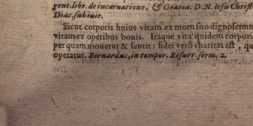 gent. libr. de incarnatione, & Gratia. D. N. Iesu Christ
Diac. subiuir.
Sicut corporis huius vitam ex motu suo dignoscimus
vitam ex operibus bonis. Itaque vita quidem corporis
per quam mouetur & sentit: fidei verò charitas est, qu
operatur. Bernardus, in tempor. Resurr. serm. 2.